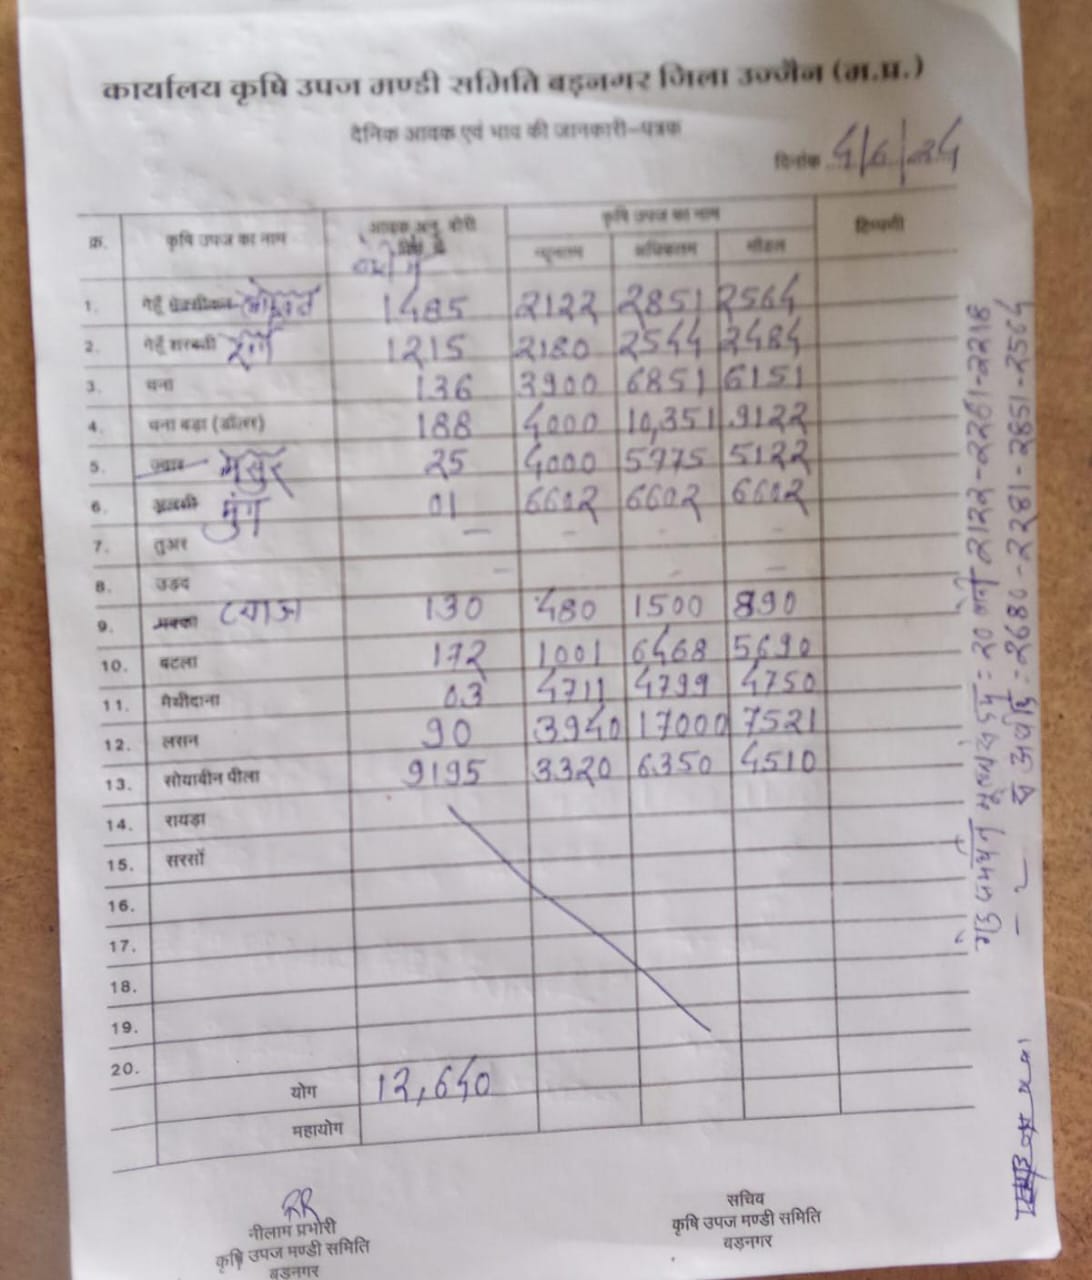 कार्यालय कृषि उपज मण्डी समिति बड़नगर जिला उज्जैन (म.प्र.)
दैनिक आवक एवं भाव की जानकारी-पत्रक
दिनांक 4/6/24
क्र. कृषि उपज का नाम आवक अनु. बोरी कृषि उपज का नाम टिप्पणी
बोरी में न्यूनतम अधिकतम मॉडल
1. गेहूँ लोकवन 1485 2122 2851 2564
2. गेहूँ शरबती 1215 2180 2544 2484
3. चना 136 3900 6851 6151
4. चना बड़ा (डॉलर) 188 4000 10,351 9122
5. ज्वार मसूर 25 4000 5975 5122
6. अलसी मुंग 01 6602 6602 6602
7. तुअर — – – –
8. उड़द – – –
9. मक्का प्याज 130 480 1500 890
10. बटला 172 1001 6468 5690
11. मैथीदाना 03 4711 4799 4750
12. लसन 90 3940 17000 7521
13. सोयाबीन पीला 9195 3320 6350 4510
14. रायड़ा
15. सरसों
16.
17.
18.
19.
20.
योग 12,640
महायोग
RR
नीलाम प्रभारी
कृषि उपज मण्डी समिति
बड़नगर
सचिव
कृषि उपज मण्डी समिति
बड़नगर
2122-2261-2218
2680-2281-2851-2564